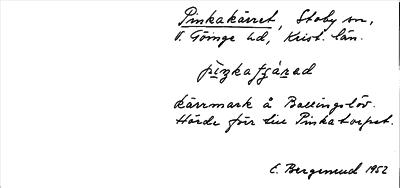 Pinkakärret, Stoby sn,
V. Göinge hd, Krist. län.
Kärrmark å Ballingslöv.
Hörde förr till Pinkatorpet.
E. Bergmud 1952